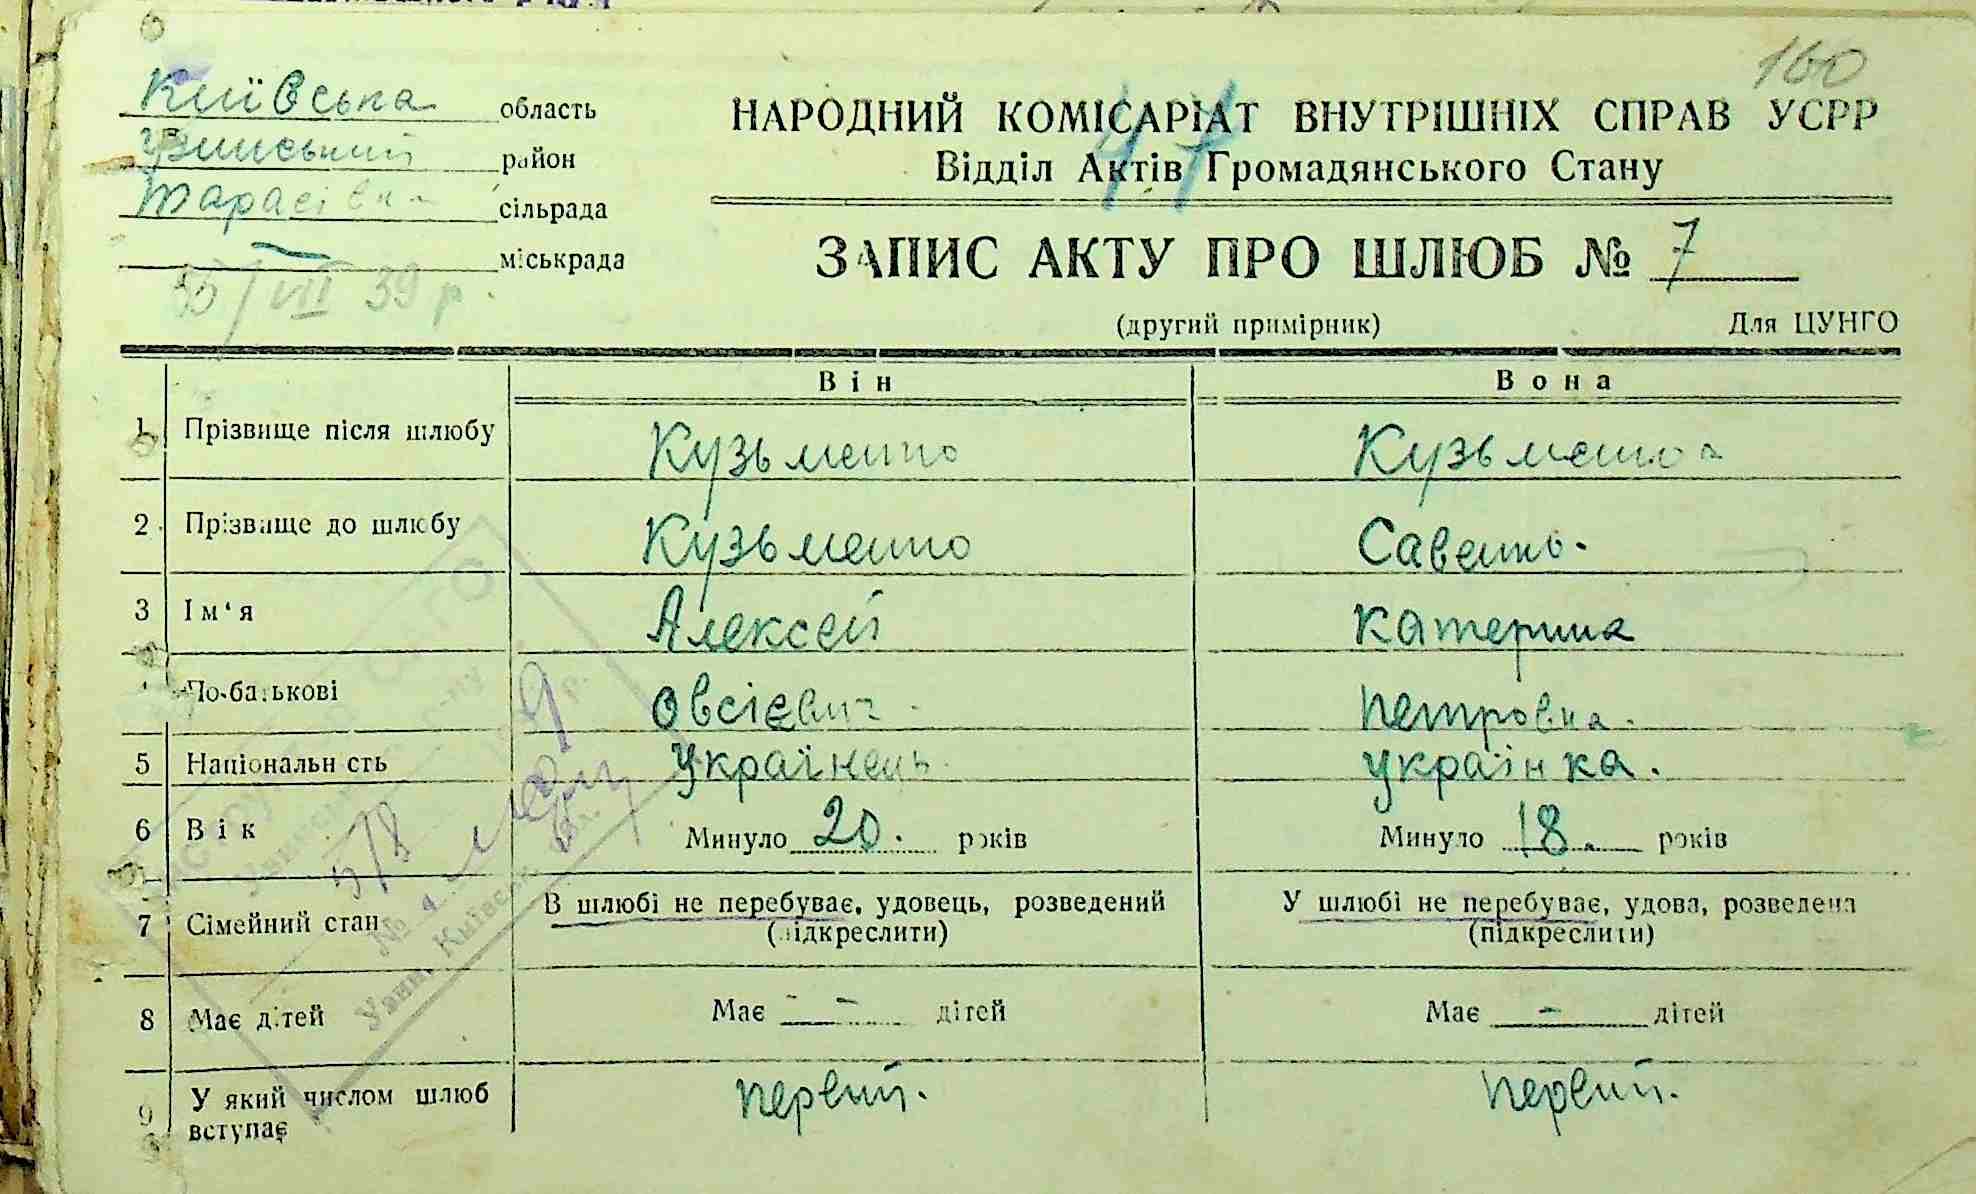 160
Київська область
Узинський район
Тарасівка сільрада
міськрада
5/VII 39 р.
НАРОДНИЙ КОМІСАРІАТ ВНУТРІШНІХ СПРАВ УСРР
Відділ Актів Громадянського Стану
47
ЗАПИС АКТУ ПРО ШЛЮБ № 7
(другий примірник) Для ЦУНГО
Він Вона
1 Прізвище після шлюбу Кузьменко Кузьменко
2 Прізвище до шлюбу Кузьменко Савенко.
3 Ім‘я Алексей Катерина
По-батькові Овсієвич Петровна.
5 Національність українець українка.
6 Вік Минуло 20. років Минуло 18. років
7 Сімейний стан В шлюбі не перебуває, удовець, розведений У шлюбі не перебуває, удова, розведена
(підкреслити) (підкреслити)
8 Має дітей Має - - дітей Має - дітей
9 У який числом шлюб первий. первий.
вступає
5/8
№ 4
Узин, Київської обл.